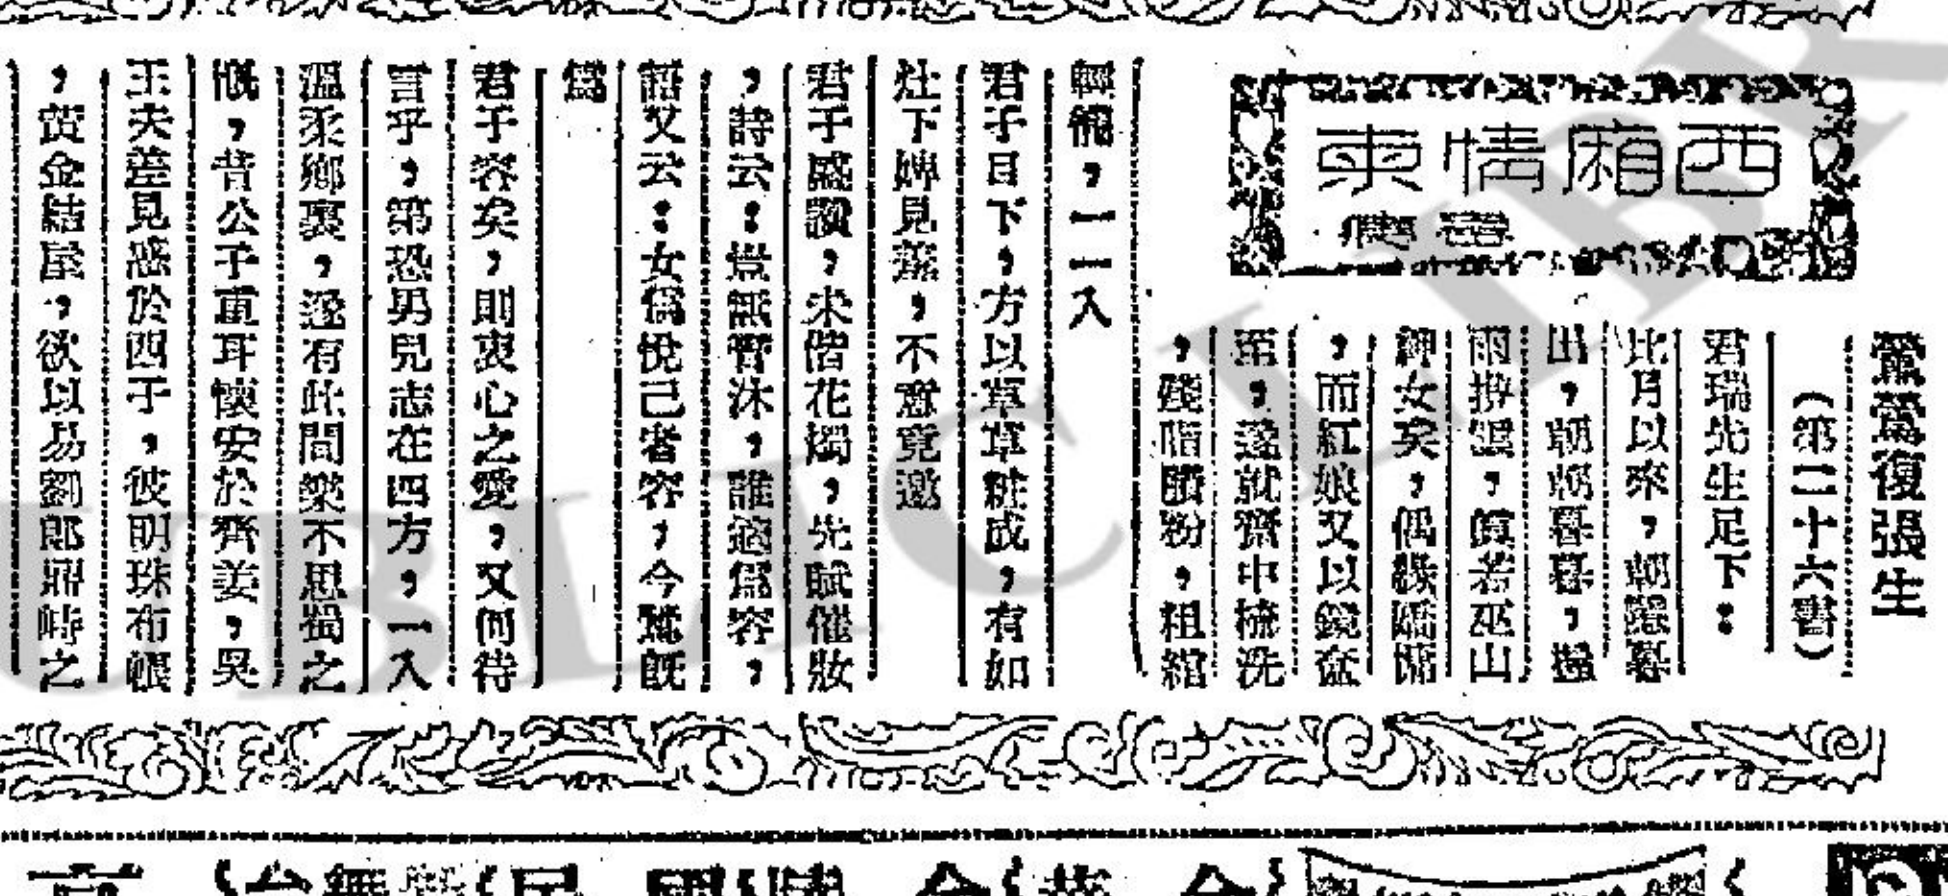 西廂情柬
鶯鶯復張生
（第二十六書）
君瑞先生足下：
此月以來，朝雲暮
出，朝朝暮暮，
雨撥雲，真若巫山
神女矣，偶緣嬌慵
，而紅娘又以鏡奩
至，遂就齋中梳洗
，殘脂賸粉，粗綰
輕籠，一一入
君子目下，方以草草粧成，有如
灶下婢見羞，不意竟邀
君子盛讚，未偕花燭，先賦催妝
，詩云：豈無膏沐，誰適爲容，
語又云：女爲悅己者容，今鶯既
爲
君子容矣，則衷心之愛，又何待
言乎，第恐男兒志在四方，一入
溫柔鄉裏，遂有此間樂不思蜀之
慨，昔公子重耳懷安於齊姜，吳
王夫差見惑於西子，彼明珠布帳
，黃金結屋，欲以易劉郎鼎峙之